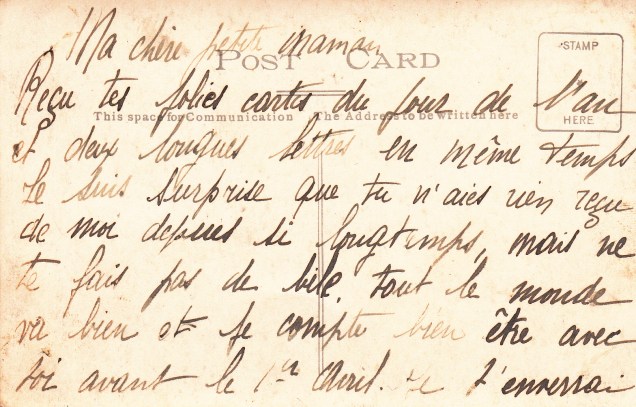 Ma chère petite maman
POST CARD
STAMP
HERE
Reçu tes jolies cartes du jour de l'an
This space for Communication The Address to be written here
et deux longues lettres en même temps
Je suis surprise que tu n'aies rien reçu
de moi depuis si longtemps, mais ne
te fais pas de bile, tout le monde
va bien et je compte bien être avec
toi avant le 1er Avril. Je t'enverrai